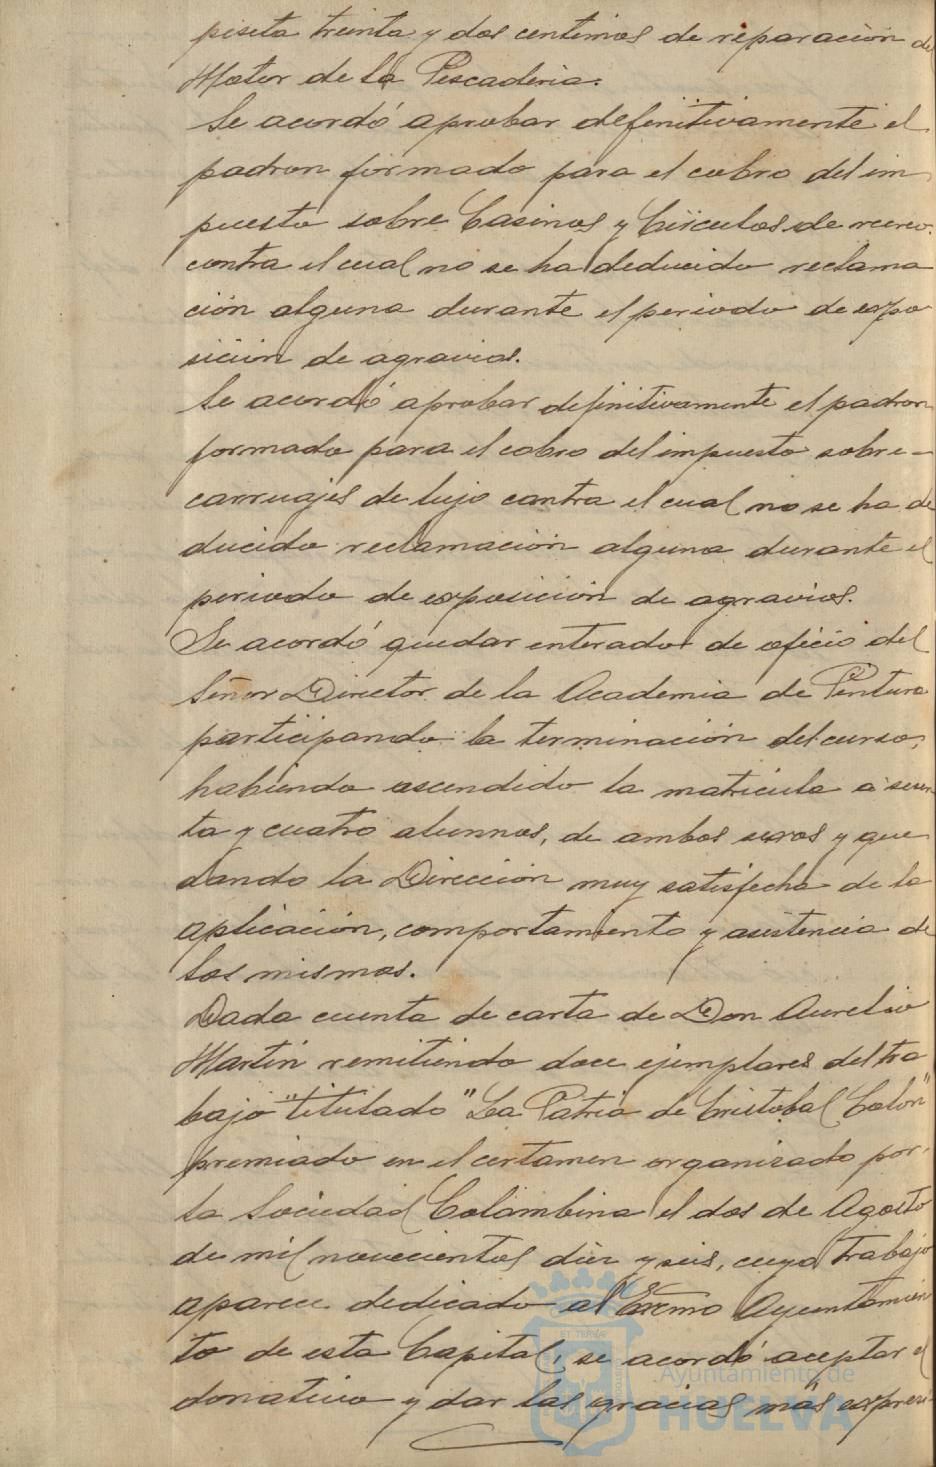 peseta treinta y dos centimos de reparación del
Motor de la Pescaderia.
Se acordó aprobar definitivamente el
padron formado para el cobro del im
puesto sobre Casinos y Circulos de recreo.
contra el cual no se ha deducido reclama
ción alguna durante el periodo de expo
sición de agravios.
Se acordó aprobar definitivamente el padron
formado para el cobro del impuesto sobre-
carruajes de lujo contra el cual no se ha de
ducido reclamación alguna durante el
periodo de exposición de agravios.
Se acordó quedar enterado de oficio del
Señor Director de la Academia de Pintura
participando la terminación del curso,
habiendo ascendido la matricula a sesen-
ta y cuatro alumnos, de ambos sexos y que
dando la Dirección muy satisfecha de la
aplicación, comportamiento y asistencia de
los mismos.
Dada cuenta de carta de Don Aurelio
Martin remitiendo doce ejemplares del tra
bajo "titulado" La Patria de Cristobal Colón"
premiado en el certamen organizado por
la Sociedad Colombina el dos de Agosto
de mil novecientos diez y seis, cuyo trabajo
aparece dedicado al Excmo Ayuntamien
to de esta Capital, se acordó aceptar el
donativo y dar las gracias más expresi-
Ayuntamiento de
HUELVA